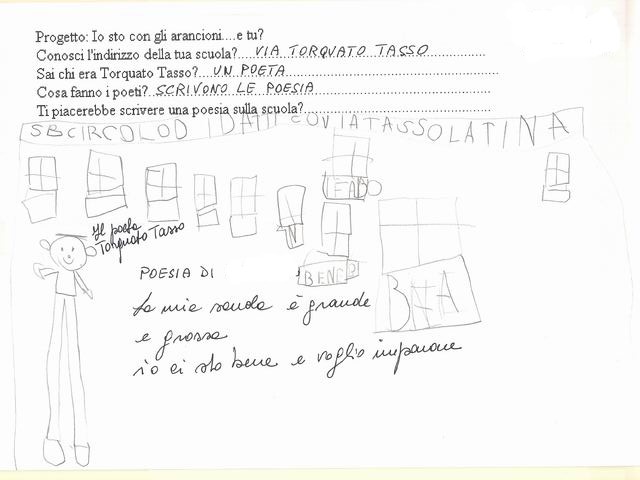 Progetto: Io sto con gli arancioni....e tu?
Conosci l'indirizzo della tua scuola? VIA TORQUATO TASSO
Sai chi era Torquato Tasso? UN POETA
Cosa fanno i poeti? SCRIVONO LE POESIA
Ti piacerebbe scrivere una poesia sulla scuola?
SBCIRCOLOD IDATTICOVIATASSOLATINA
Il poeta
Torquato Tasso
POESIA DI
La mia scuola è grande
e grossa
io ci sto bene e voglio imparare